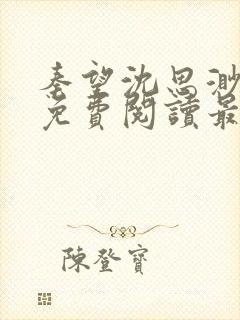 秦望沈思渺
免費閱讀最
陳登寶